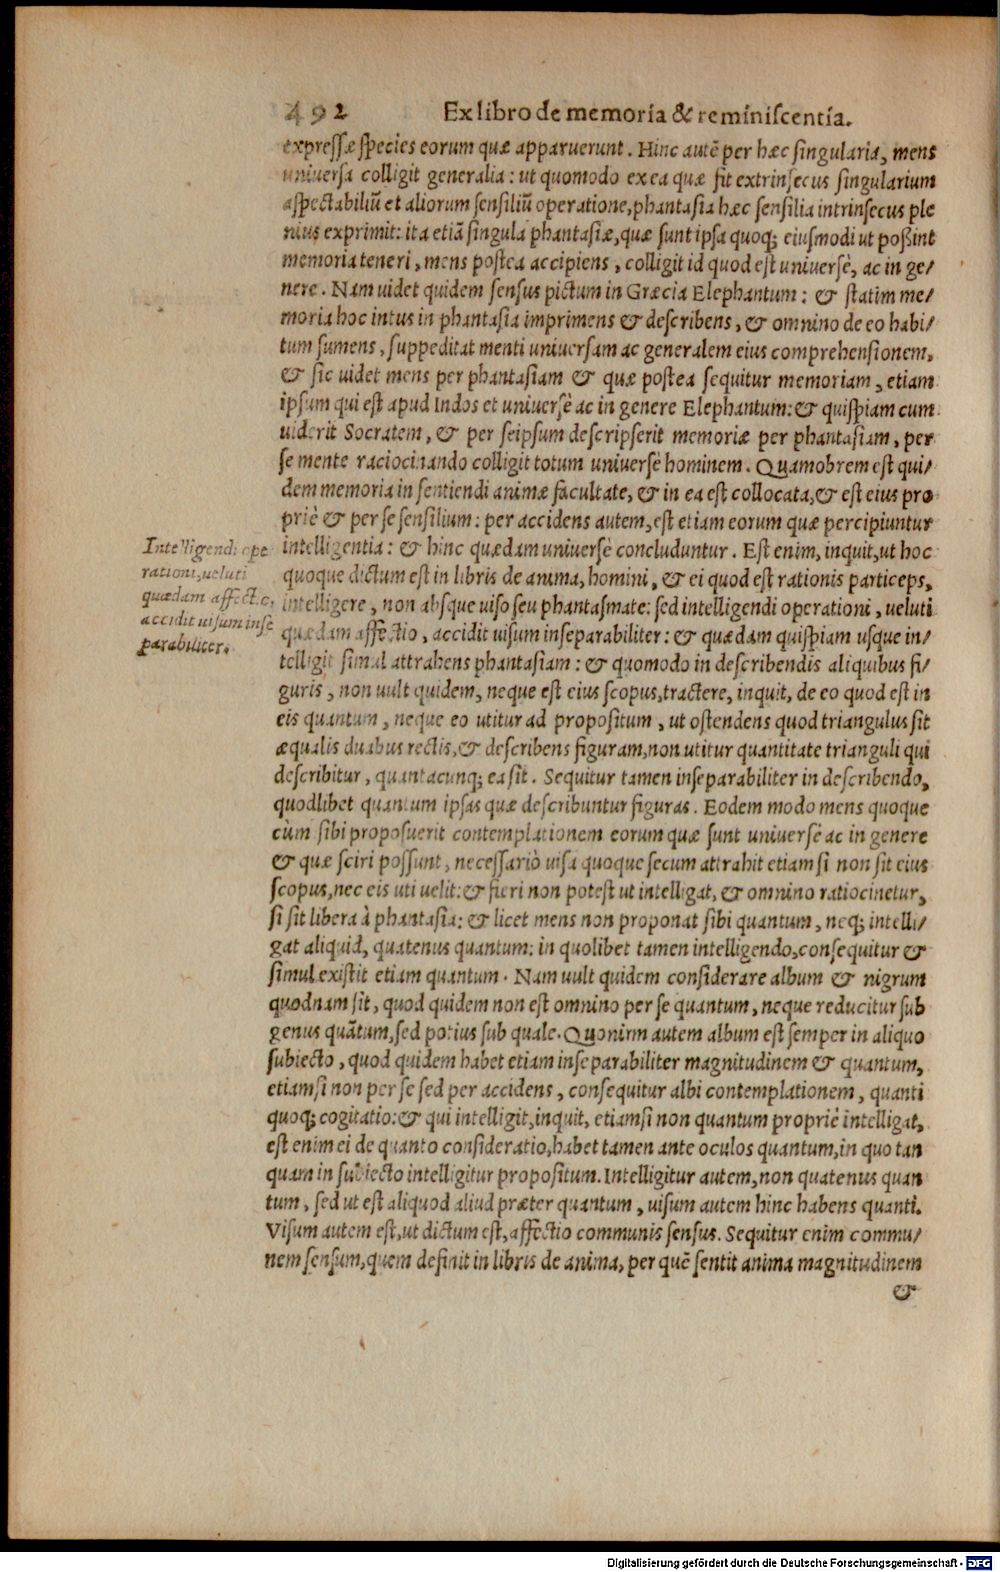 492 Ex libro de memoria & reminiscentia.
expressæ species eorum quæ apparuerunt. Hinc autē per hæc singularia, mens
universa colligit generalia: ut quomodo ex ea quæ fit extrinsecus singularium
aspectabiliū et aliorum sensiliū operatione, phantasia hæc sensilia intrinsecus ple
nius exprimit: ita etiā singula phantasiæ, quæ sunt ipsa quoq; eiusmodi ut poßint
memoria teneri, mens postea accipiens, colligit id quod est universè, ac in ge/
nere. Nam uidet quidem sensus pictum in Græcia Elephantum: & statim me/
moria hoc intus in phantasia imprimens & describens, & omnino de eo habi/
tum sumens, suppeditat menti universam ac generalem eius comprehensionem,
& sic uidet mens per phantasiam & quæ postea sequitur memoriam, etiam
ipsum qui est apud Indos et universè ac in genere Elephantum: & quispiam cum
uiderit Socratem, & per seipsum descripserit memoriæ per phantasiam, per
se mente raciocinando colligit totum universè hominem. Quamobrem est qui/
dem memoria in sentiendi animæ facultate, & in ea est collocata, & est eius pro
priè & per se sensilium: per accidens autem, est etiam eorum quæ percipiuntur
intelligentia: & hinc quædam universè concluduntur. Est enim, inquit, ut hoc
quoque dictum est in libris de anima, homini, & ei quod est rationis particeps,
intelligere, non absque uiso seu phantasmate: sed intelligendi operationi, ueluti
quædam affectio, accidit uisum inseparabiliter: & quædam quispiam usque in/
telligit simul attrahens phantasiam: & quomodo in describendis aliquibus fi/
guris, non uult quidem, neque est eius scopus, tractere, inquit, de eo quod est in
eis quantum, neque eo utitur ad propositum, ut ostendens quod triangulus sit
æqualis duabus rectis, & describens figuram, non utitur quantitate trianguli qui
describitur, quantacunq; ea sit. Sequitur tamen inseparabiliter in describendo,
quodlibet quantum ipsas quæ describuntur figuras. Eodem modo mens quoque
cùm sibi proposuerit contemplationem eorum quæ sunt universè ac in genere
& quæ sciri possunt, necessariò uisa quoque secum attrahit etiam si non sit eius
scopus, nec eis uti uelit: & fieri non potest ut intelligat, & omnino ratiocinetur,
si sit libera à phantasia: & licet mens non proponat sibi quantum, neq; intelli/
gat aliquid, quatenus quantum: in quolibet tamen intelligendo, consequitur &
simul existit etiam quantum. Nam uult quidem considerare album & nigrum
quodnam sit, quod quidem non est omnino per se quantum, neque reducitur sub
genus quātum, sed potius sub quale. Quonirm autem album est semper in aliquo
subiecto, quod quidem habet etiam inseparabiliter magnitudinem & quantum,
etiamsi non per se sed per accidens, consequitur albi contemplationem, quanti
quoq; cogitatio: & qui intelligit, inquit, etiamsi non quantum propriè intelligat,
est enim ei de quanto consideratio, habet tamen ante oculos quantum, in quo tan
quam in subiecto intelligitur propositum. Intelligitur autem, non quatenus quan
tum, sed ut est aliquod aliud præter quantum, uisum autem hinc habens quanti.
Visum autem est, ut dictum est, affectio communis sensus. Sequitur enim commu/
nem sensum, quem definit in libris de anima, per quē sentit anima magnitudinem
&
Intelligendi ope
rationi, ueluti
quædam affectio,
accidit uisum insē
parabiliter.
Digitalisierung gefördert durch die Deutsche Forschungsgemeinschaft - DFG